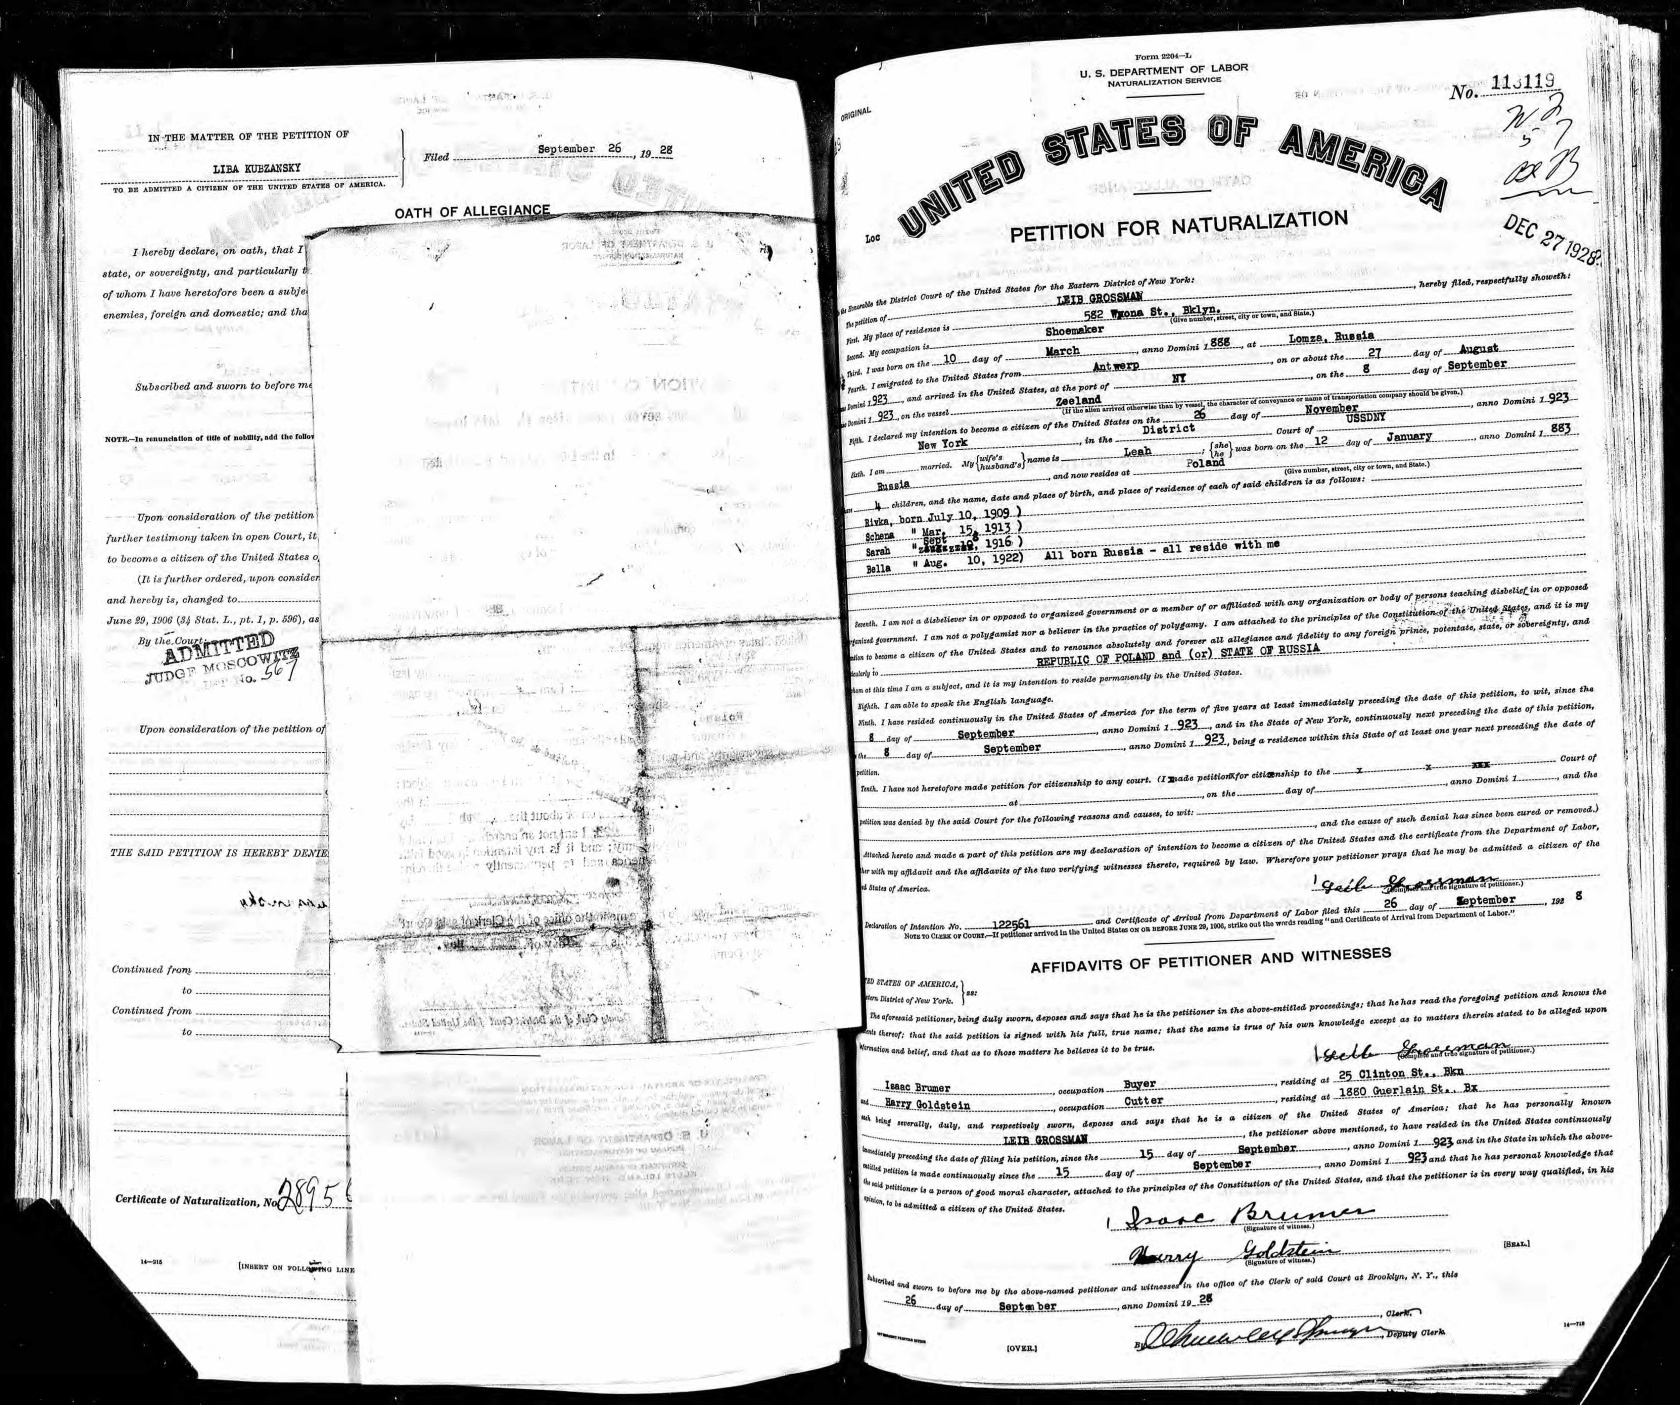 IN THE MATTER OF THE PETITION OF
LIBA KUBZANSKY
TO BE ADMITTED A CITIZEN OF THE UNITED STATES OF AMERICA.
Filed September 26, 1928
OATH OF ALLEGIANCE
I hereby declare, on oath, that I
state, or sovereignty, and particularly
of whom I have heretofore been a subje
enemies, foreign and domestic; and tha
Subscribed and sworn to before me
NOTE.—In renunciation of title of nobility, add the follow
Upon consideration of the petition
further testimony taken in open Court, it
to become a citizen of the United States o
(It is further ordered, upon consider
and hereby is, changed to
June 29, 1906 (34 Stat. L., pt. 1, p. 596), as
By the Court:
ADMITTED
JUDGE MOSCOWITZ
No. 567
Upon consideration of the petition of
THE SAID PETITION IS HEREBY DENIE
Continued from
to
Continued from
to
Certificate of Naturalization, No. 2895
14—215
[INSERT ON FOLLOWING LINE
Form 2204—L
U. S. DEPARTMENT OF LABOR
NATURALIZATION SERVICE
ORIGINAL
No. 113119
UNITED STATES OF AMERICA
DEC 27 1928
PETITION FOR NATURALIZATION
Honorable the District Court of the United States for the Eastern District of New York:
The petition of LEIB GROSSMAN, hereby filed, respectfully showeth:
First. My place of residence is 582 Wyona St., Bklyn.
(Give number, street, city or town, and State.)
Second. My occupation is Shoemaker
Third. I was born on the 10 day of March, anno Domini 1888, at Lomza, Russia
Fourth. I emigrated to the United States from Antwerp, on or about the 27 day of August
Domini 1923, and arrived in the United States, at the port of NY, on the 8 day of September
Domini 1923, on the vessel Zeeland
(If the alien arrived otherwise than by vessel, the character of conveyance or name of transportation company should be given.)
Fifth. I declared my intention to become a citizen of the United States on the 26 day of November, anno Domini 1923
New York, in the District Court of USSDNY
Sixth. I am married. My {wife's husband's} name is Leah {she he} was born on the 12 day of January anno Domini 1883
Russia, and now resides at Poland
(Give number, street, city or town, and State.)
4 children, and the name, date and place of birth, and place of residence of each of said children is as follows:
Rivka, born July 10, 1909 )
Schena " Mar. 15, 1913 )
Sarah " Sept 1916 )
Bella " Aug. 10, 1922) All born Russia - all reside with me
Seventh. I am not a disbeliever in or opposed to organized government or a member of or affiliated with any organization or body of persons teaching disbelief in or opposed
organized government. I am not a polygamist nor a believer in the practice of polygamy. I am attached to the principles of the Constitution of the United States, and it is my
intention to become a citizen of the United States and to renounce absolutely and forever all allegiance and fidelity to any foreign prince, potentate, state, or sovereignty, and
REPUBLIC OF POLAND and (or) STATE OF RUSSIA
whom at this time I am a subject, and it is my intention to reside permanently in the United States.
Eighth. I am able to speak the English language.
Ninth. I have resided continuously in the United States of America for the term of five years at least immediately preceding the date of this petition, to wit, since the
8 day of September, anno Domini 1923, and in the State of New York, continuously next preceding the date of this petition,
the 8 day of September, anno Domini 1923, being a residence within this State of at least one year next preceding the date of
petition.
Tenth. I have not heretofore made petition for citizenship to any court. (I made petition for citizenship to the x x xxx Court of
at, on the day of, anno Domini 1, and the
petition was denied by the said Court for the following reasons and causes, to wit:
, and the cause of such denial has since been cured or removed.)
Attached hereto and made a part of this petition are my declaration of intention to become a citizen of the United States and the certificate from the Department of Labor,
with my affidavit and the affidavits of the two verifying witnesses thereto, required by law. Wherefore your petitioner prays that he may be admitted a citizen of the
States of America.
Leib Grossman
(Complete and true signature of petitioner.)
Declaration of Intention No. 122561 and Certificate of Arrival from Department of Labor filed this 26 day of September, 1928
NOTE TO CLERK OF COURT.—If petitioner arrived in the United States ON OR BEFORE JUNE 29, 1906, strike out the words reading "and Certificate of Arrival from Department of Labor."
AFFIDAVITS OF PETITIONER AND WITNESSES
STATES OF AMERICA,
District of New York. ss:
The aforesaid petitioner, being duly sworn, deposes and says that he is the petitioner in the above-entitled proceedings; that he has read the foregoing petition and knows the
thereof; that the said petition is signed with his full, true name; that the same is true of his own knowledge except as to matters therein stated to be alleged upon
information and belief, and that as to those matters he believes it to be true.
Leib Grossman
(Complete and true signature of petitioner.)
Isaac Brumer, occupation Buyer, residing at 25 Clinton St., Bkn
and Harry Goldstein, occupation Cutter, residing at 1880 Guerlain St.. Bx
each being severally, duly, and respectively sworn, deposes and says that he is a citizen of the United States of America; that he has personally known
LEIB GROSSMAN, the petitioner above mentioned, to have resided in the United States continuously
immediately preceding the date of filing his petition, since the 15 day of September, anno Domini 1923 and in the State in which the above-
entitled petition is made continuously since the 15 day of September, anno Domini 1923 and that he has personal knowledge that
the said petitioner is a person of good moral character, attached to the principles of the Constitution of the United States, and that the petitioner is in every way qualified, in his
opinion, to be admitted a citizen of the United States.
Isaac Brumer
(Signature of witness.)
Harry Goldstein
(Signature of witness.)
[SEAL.]
Subscribed and sworn to before me by the above-named petitioner and witnesses in the office of the Clerk of said Court at Brooklyn, N. Y., this
26 day of September, anno Domini 1928
, Clerk.
By, Deputy Clerk.
[OVER.]